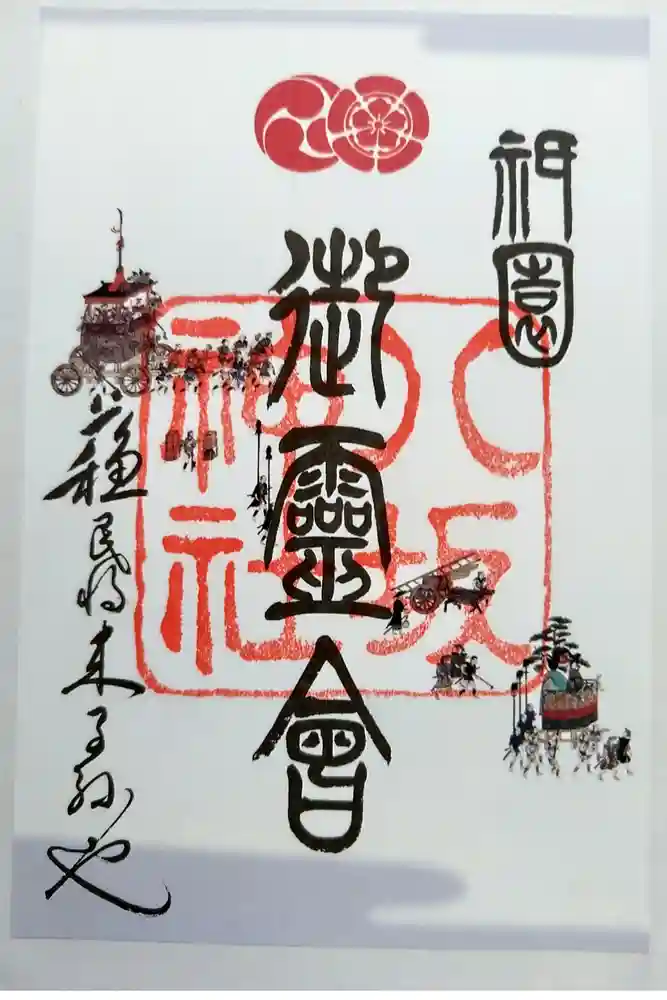 祇園
御靈會
蘇民将来子孫也
八坂
神社